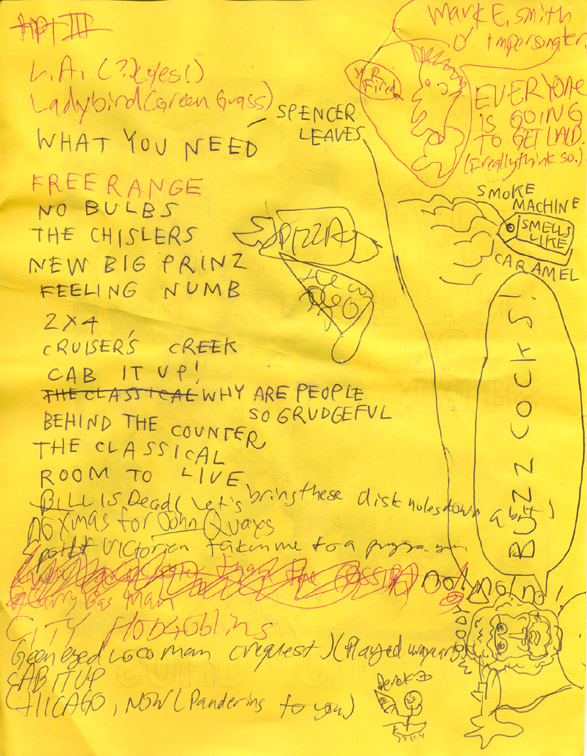 Mark E. Smith
Impersonator
L.A. (?) (yes!)
Ladybird (Green Grass)
MR.
Fiend
EVERYONE
IS GOING
TO GET LAID.
(I really think so.)
WHAT YOU NEED
SPENCER
LEAVES
FREE RANGE
NO BULBS
THE CHISLERS
NEW BIG PRINZ
FEELING NUMB
SMOKE
MACHINE
SMELLS
LIKE
CARAMEL
PIZZA
2X4
CRUISER'S CREEK
CAB IT UP!
THE CLASSICAL WHY ARE PEOPLE
SO GRUDGEFUL
BEHIND THE COUNTER
THE CLASSICAL
ROOM TO LIVE
BUZZCOCKS!
BILL IS Dead (Let's bring these disk holes down a bit)
NO Xmas for John Quays
Spoilt Victorian
No! No! no!
Carry Bag Man
CITY HobGoblins
Green eyed Loco man (request)
CAB IT UP
CHICAGO, NOW! (Pandering to you)